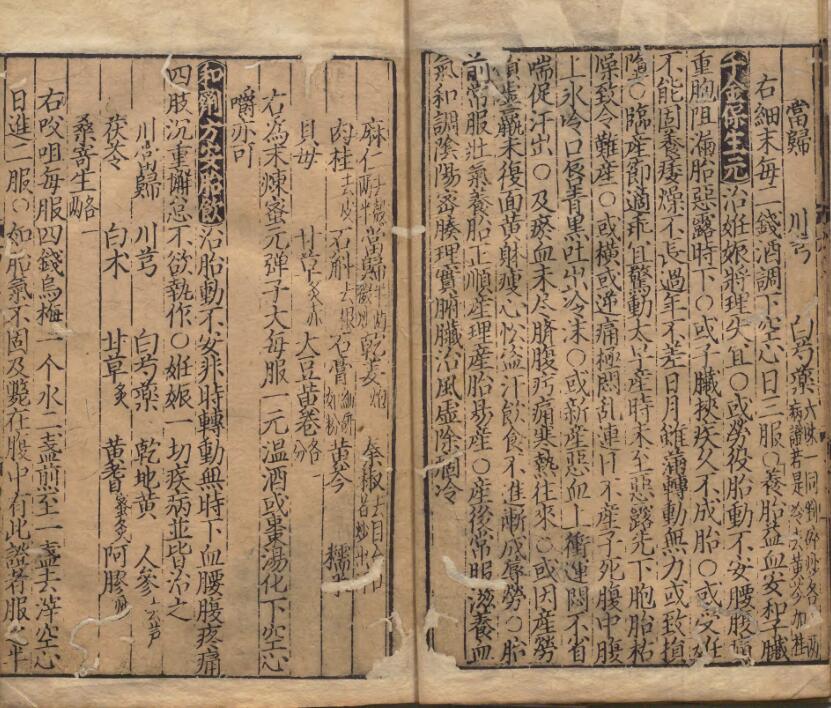 當歸 川芎 白芍藥
右細末每二錢酒調下空心日三服○養胎益血安和子臟
千金保生元 治姙娠將理失宜○或勞役胎動不安腰腹痛
重胞阻漏胎惡露時下○或子臟挾疾久不成胎○或受姙
不能固養痿燥不長過年不差日月雖滿轉動無力或致損
墮○臨産節適乖宜驚動太早産時未至惡露先下胞胎枯
燥致令難産○或橫或逆痛極悶乱連日不産子死腹中腹
上氷冷口唇青黑吐出冷沫○或新産惡血上衝運悶不省
喘促汗出○及瘀血未尽臍腹疞痛寒熱往來○或因産勞
虛羸未復面黃躰瘦心忪盗汗飲食不進漸成蓐勞○胎
前常服壯氣養胎正順産理産胎易産○産後常服滋養血
氣和調陰陽密腠理實腑臓治風虛除痼冷
麻仁 當歸 乾姜炮 秦椒
肉桂去皮 石斛去根 石膏 黃芩 糯米
貝母 甘草 大豆黃卷各一分
右為末煉蜜元弹子大每服一元温酒或棗湯化下空心
嚼亦可
和劑方安胎飲 治胎動不安非時轉動無時下血腰腹疼痛
四肢沉重懈怠不欲執作○姙娠一切疾病並皆治之
川當歸 川芎 白芍藥 乾地黃 人參去芦
茯苓 白术 甘草炙 黃耆蜜炙 阿膠
桑寄生
右㕮咀每服四錢烏梅一个水二盞煎至一盞去滓空心
日進二服○如胎氣不固及斃在腹中有此證者服之